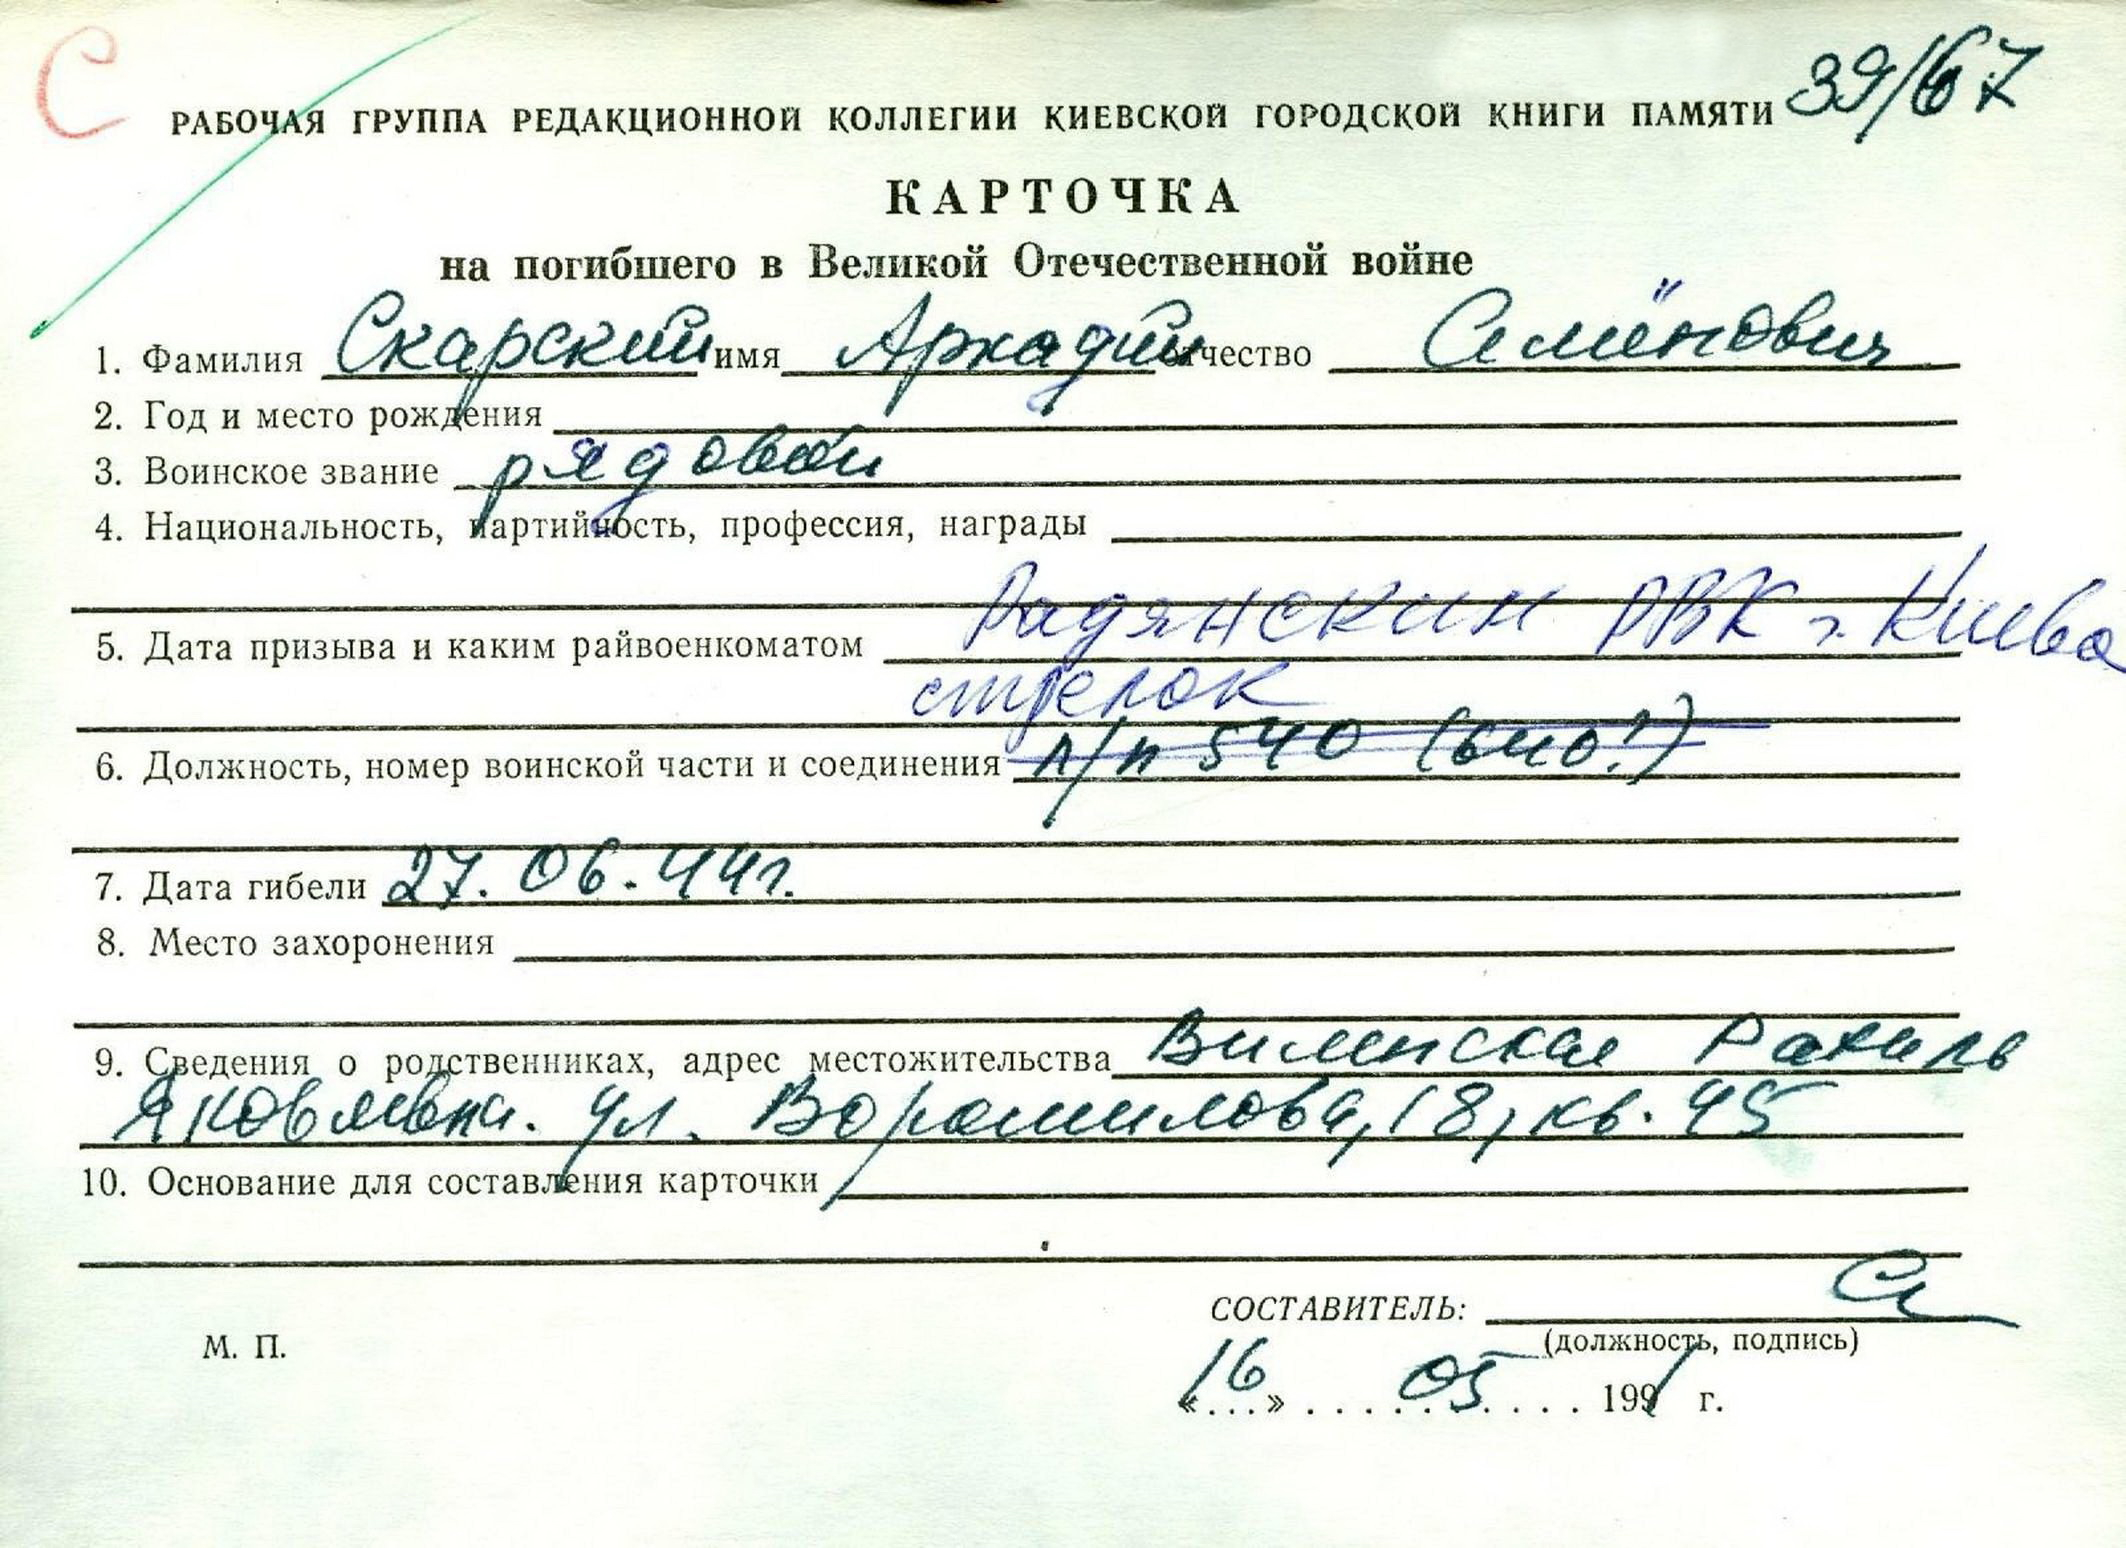 С
39/67
РАБОЧАЯ ГРУППА РЕДАКЦИОННОЙ КОЛЛЕГИИ КИЕВСКОЙ ГОРОДСКОЙ КНИГИ ПАМЯТИ
КАРТОЧКА
на погибшего в Великой Отечественной войне
1. Фамилия Скарский имя Аркадий отчество Семёнович
2. Год и место рождения
3. Воинское звание рядовой
4. Национальность, партийность, профессия, награды
5. Дата призыва и каким райвоенкоматом Радянским РВК г. Киева
стрелок
6. Должность, номер воинской части и соединения п/п 540
7. Дата гибели 27.06.44г.
8. Место захоронения
9. Сведения о родственниках, адрес местожительства Виленская Рахиль
Яковлевна. ул. Ворошилова, 18, кв. 45
10. Основание для составления карточки
СОСТАВИТЕЛЬ:
(должность, подпись)
М. П.
«16» 05 1991 г.